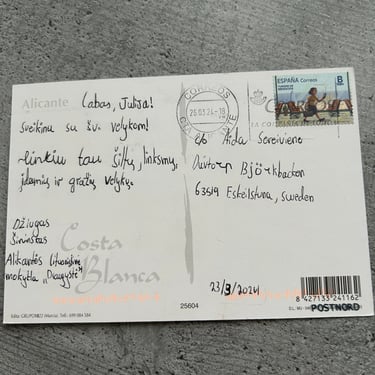 Alicante
Labas, Julija!
Sveikinu su šv. Velykom!
Linkiu tau šiltų, linksmų,
įdomių ir gražių Velykų.
Džiugas
Širvinskas
Alikantės lituanistinė
mokykla „Draugystė"
Costa
Blanca
CORREOS
25.03.24-18
ALICANTE
ESPAÑA Correos
B
c/o Aida Sereivienė
Björkbacken
63519 Eskilstuna, Sweden
23/3/2024
25604
8 427133 241162
POSTNORD